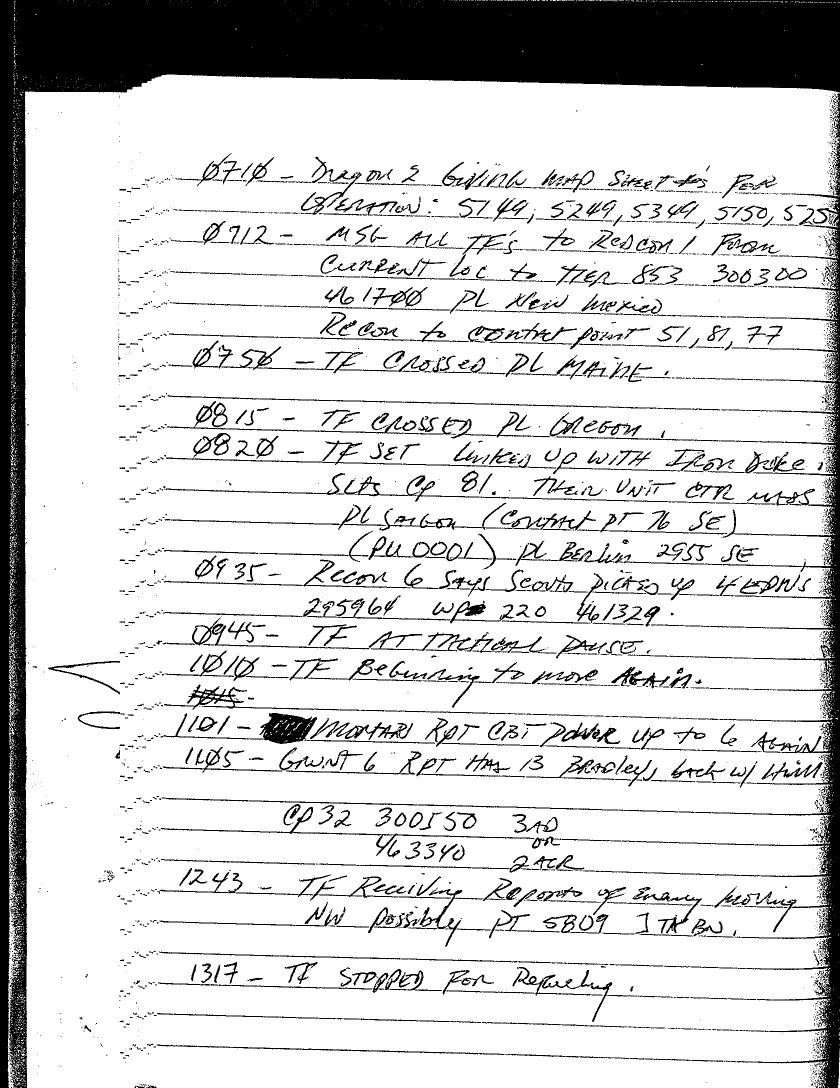 0710 - Dragon 2 Giving MAP Sheet #'s FOR
OPERATION: 5149, 5249, 5349, 5150, 525
0712 - MSG ALL TF's to REDCON 1 From
CURRENT LOC to TIER 853 300300
461700 PL New Mexico
Recon to contact point 51, 81, 77
0750 - TF CROSSED PL MAINE.
0815 - TF CROSSED PL OREGON.
0820 - TF SET Linked UP WITH IRON Duke
CP 81. THEIR UNIT CTR MASS
PL SAIGON (CONTACT PT 76 SE)
(PU 0001) PL Berlin 2955 SE
0935 - Recon 6 Says Scouts picked up 4 EPW's
295964 WP 220 461329.
0945 - TF AT TACTICAL PAUSE.
1010 - TF Beginning to move AGAIN.
1015 -
1101 - MORTAR RPT CBT POWER UP to 6 AGAIN
1105 - GRUNT 6 RPT HAS 13 BRADleys back w/ Him
CP 32 300550 3AD
OR
463340 2ACR
1243 - TF Receiving Reports of Enemy moving
NW possibly PT 5809 1 TK BN.
1317 - TF STOPPED FOR Refueling.